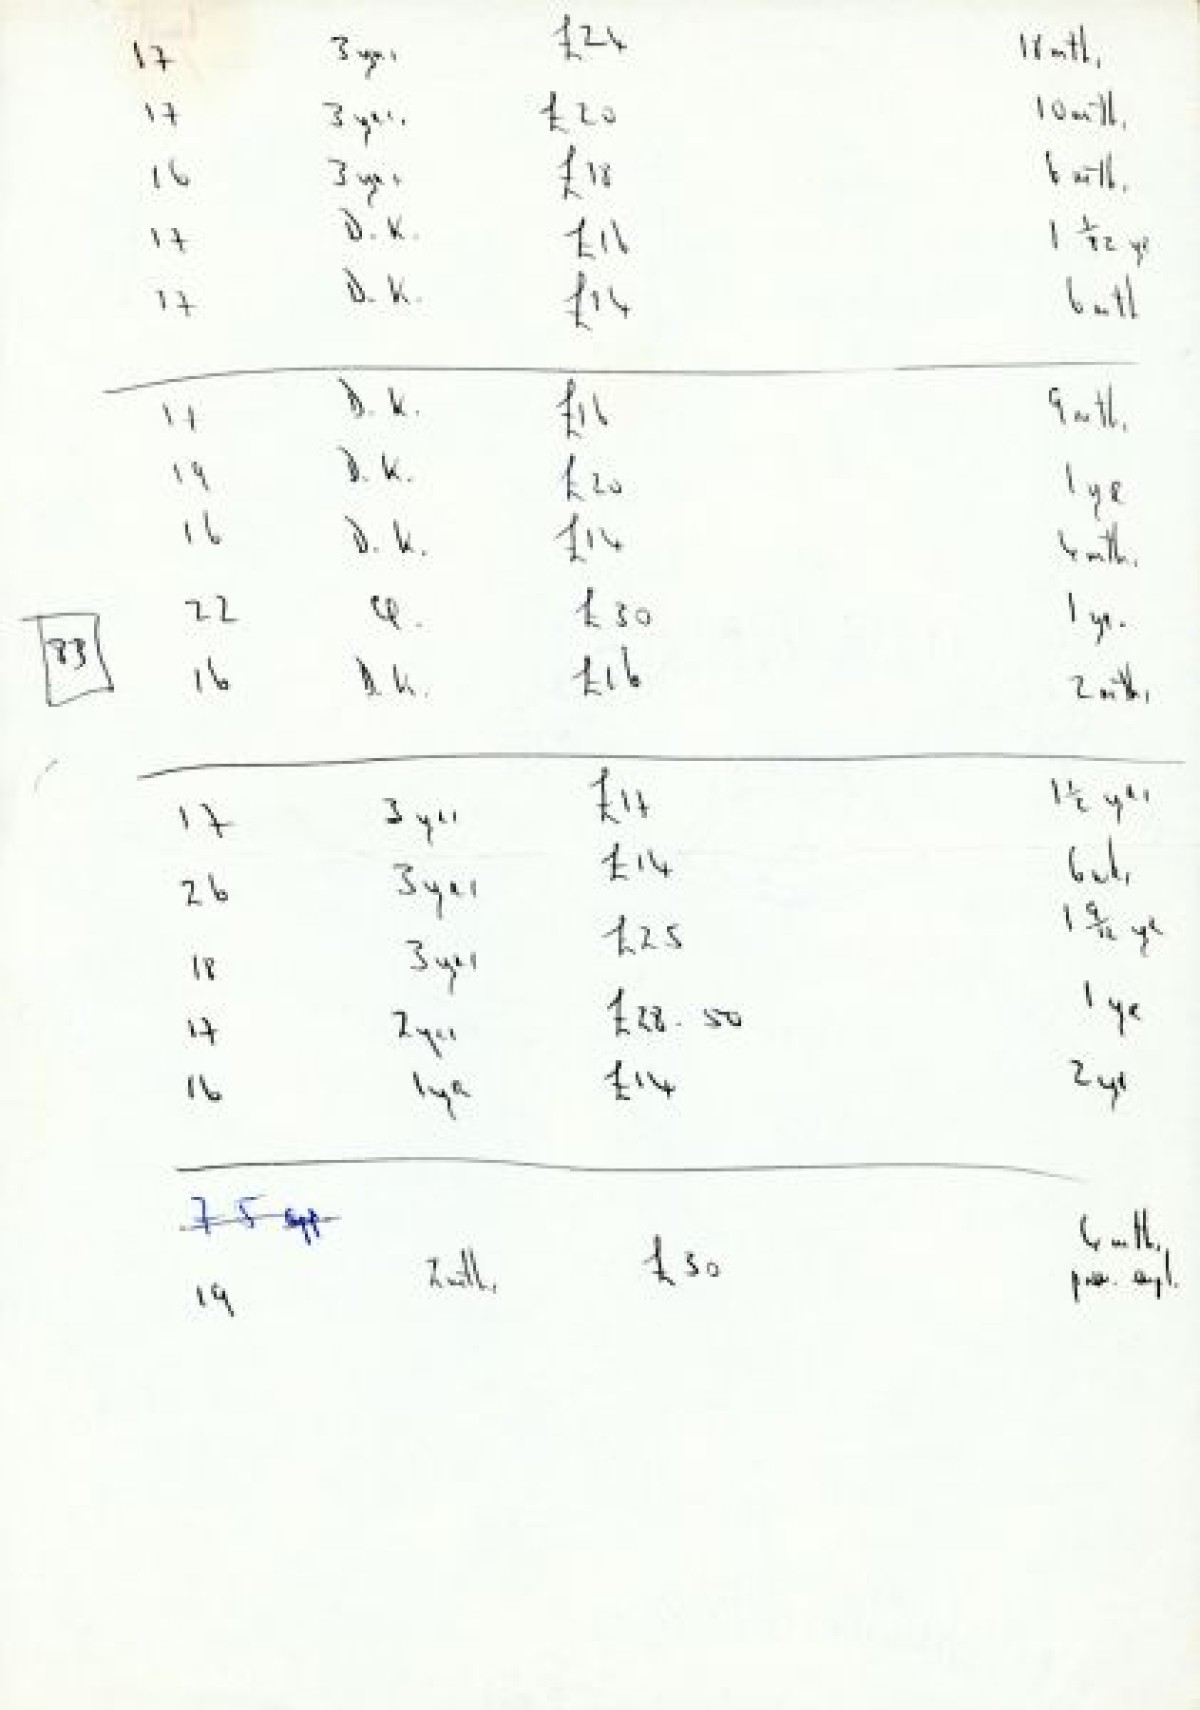 17 3 yrs £24 18 mths
17 3 yrs. £20 10 mths.
16 3 yrs £18 6 mths.
17 D.K. £16 1 1/12 yr
17 D.K. £14 6 mth
17 D.K. £16 9 mths
19 D.K. £20 1 yr
16 D.K. £14 mths.
22 £30 1 yr.
33
16 D.K. £16 2 mths
17 3 yrs £17 1½ yrs
26 3 yrs £14 6 mths
18 3 yrs £25 1 9/12 yr
17 2 yrs £28.50 1 yr
16 1 yr £14 2 yr
75 app
19 2 mths £30 mths
prev. empl.